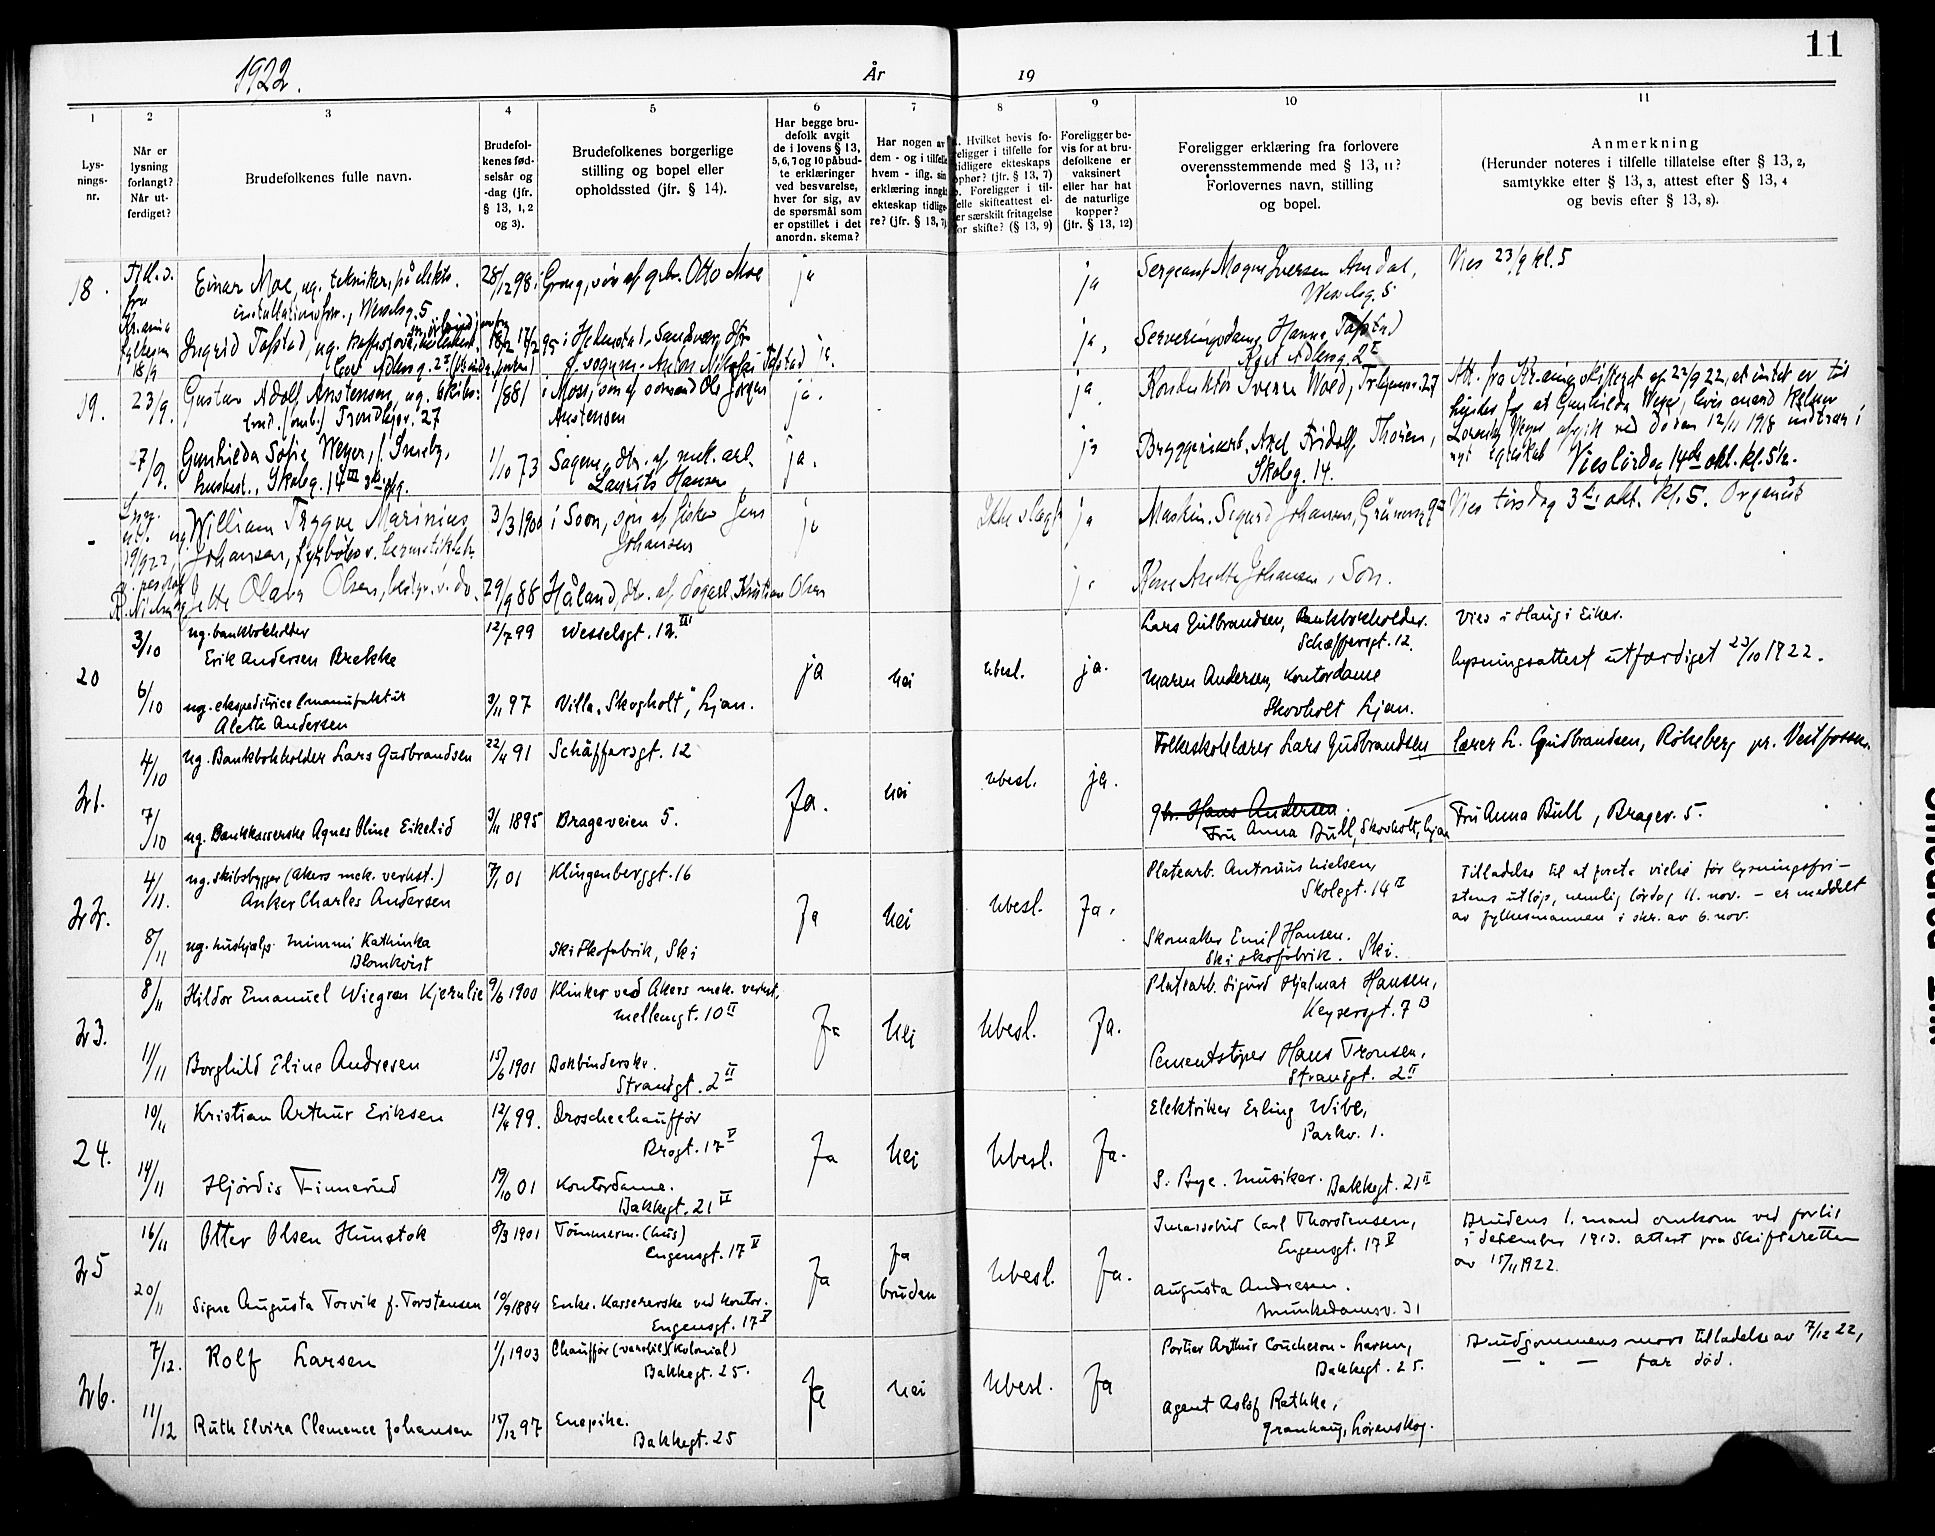 11
1922.
År
19
1
2
3
4
5
6
7
8
9
10
11
Lys-
nings-
nr.
Når er
lysning
forlangt?
Når ut-
ferdiget?
Brudefolkenes fulle navn.
Brudefol-
kenes fød-
selsår og
-dag (jfr.
§ 13, 1, 2
og 3).
Brudefolkenes borgerlige
stilling og bopel eller
opholdssted (jfr. § 14).
Har begge bru-
defolk avgit
de i lovens § 13,
5, 6, 7 og 10 påbud-
te erklæringer
ved besvarelse,
hver for sig, av
de spørsmål som
er opstillet i det
anordn. skema?
Har nogen av
dem - og i tilfelle
hvem - iflg. sin
erklæring inngått
ekteskap tidlige-
re? (jfr. § 13, 7)
Hvilket bevis fo-
religger i tilfelle for
tidligere ekteskaps
ophør? (jfr. § 13, 7)
Foreligger i til-
felle skifteattest el-
ler særskilt fritagelse
for skifte? (§ 13, 9)
Foreligger be-
vis for at bru-
defolkene er
vaksinert
eller har hat
de naturlige
kopper?
(jfr. § 13, 12)
Foreligger erklæring fra forlovere
overensstemmende med § 13, 11?
Forlovernes navn, stilling
og bopel.
Anmerkning
(Herunder noteres i tilfelle tillatelse efter § 13, 2,
samtykke efter § 13, 3, attest efter § 13, 4
og bevis efter § 13, 8).
18.
fra
18/9
Einar Moe, ug. tekniker på elektr.
installationsforr., Wesselsg. 5
28/12 98
i Grong, søn af gbr. Otto Moe
ja
ja
Sergeant Magne Iversen Amdal,
Wesselsg. 5
Vies 23/9 kl. 5
Ingrid Tafstad, ug.
i Helmstad, Sandsvær, dtr.
ja.
ja,
Serveringsdame Hanna Tafstad
19.
23/9.
Gustav Adolf Anstensen, ug. skibs-
tmd. (omb.) Trondhjgv. 27
1/8 81
i Moss, søn af sömand Ole Jörgen
Anstensen
ja.
ja
Konduktör Sverre Wold, Trhjemsv. 27
Att. fra Kr.ania skifteret af 22/9 22, at intet er til
hinder for at Gunhilda Weyer, hvis mand
afgik ved döden 12/11 1918 indtrær i
nyt egteskab Vies lördag 14de okt. kl. 5½.
27/9.
Gunhilda Sofie Weyer, f. Smeby,
husbest., Skoleg. 14 III
1/10 73
Sagene, dtr. af mek. arb.
Laurits Hansen
ja.
ja
Bryggeriarb. Axel Fridolf Thorén,
Skoleg. 14.
-
19/9 22
William Trygve Marinius
Johansen, fyrböter v. hermetikfabr.
3/3 1900
i Soon, søn af fisker Jens
Johansen
ja
Ikke slægt
ja
Maskin. Sigurd Johansen, Grünersg. 9
Vies torsdag 3die okt. kl. 5. Organist
Jette Olava Olsen, bestyr. v. do.
29/9 88
Håland, dtr. af Kristian Olsen
ja
Fru Anette Johansen, Son.
20
3/10
ug. bankbokholder
Erik Andersen Brekke
12/7 99
Wesselsgt. 12. III
ja
nei
ubesl.
ja.
Lars Gulbrandsen, Bankbokholder.
Schæffersgt. 12.
Vies i Haug i Eiker.
Lysningsattest utfærdiget 23/10 1922.
6/10
ug. ekspeditrice i manufaktur
Alette Andersen
3/11 97
Villa „Skogholt", Ljan.
Maren Andersen, Kontordame
Skovholt Ljan.
21.
4/10
ug. Bankbokholder Lars Gudbrandsen
22/4 91
Schäffersgt. 12
Ja.
nei
ubesl.
ja.
Folkeskolelærer Lars Gudbrandsen
lærer L. Gudbrandsen, Rökeberg pr. Vestfossen.
7/10
ug. Bankkasserske Agnes Oline Eikelid
3/11 1895
Brageveien 5.
gbr. Hans Andersen
Fru Anna Bull, Skovholt, Ljan
Fru Anna Bull, Bragev. 5.
22.
4/11.
ug. skibsbygger (Akers mek. verkst.)
Anker Charles Andersen
7/1 01
Klingenberggt. 16
Ja
Nei
Ubesl.
Ja.
Platearb. Antonius Nielsen,
Skolegt. 14 II
Tilladelse til at foreta vielse för lysningsfri-
stens utlöp, nemlig lördag 11. nov. - er meddelt
av fylkesmannen i skr. av 6. nov.
8/11
ug. hushjelp. Mimmi Kathinka
Blomkvist
Ski Skofabrik, Ski
Skomaker Emil Hansen.
Ski skofabrik. Ski.
23.
8/11
Hildor Emanuel Wiegren Kjernlie
9/6 1900
Klinker ved Akers mek. verkst.
Mellemgt. 10 II
Ja
Nei
Ubesl.
Ja.
Platearb. Sigurd Hjalmar Hansen,
Keysersgt. 7 B
11/11
Borghild Eline Andresen
15/6 1901
Bokbinderske.
Strandgt. 2 II
Cementstöper Hans Tronsen,
Strandgt. 2 II
24.
10/11
Kristian Arthur Eriksen
12/4 99.
Droschechaufför
Brogt. 17 V
Ja
Nei
Ubesl.
Ja.
Elektriker Erling Wibe,
Parkv. 1.
14/11
Hjördis Finnerud
19/10 01
Kontordame.
Bakkegt. 21 II
S. Bye. Musiker. Bakkegt. 21 II
25
16/11
Otter Olsen Hunstok
8/3 1901
Tömmerm. (hus)
Engensgt. 17 V
Ja
Ja
bruden
Ubesl.
Ja.
Inkassobud Carl Thorstensen,
Engensgt. 17 V
Brudens 1. mand omkom ved forlis
i desember 1913. Attest fra Skifteretten
av 15/11 1922.
20/11
Signe Augusta Torvik f. Torstensen
10/9 1884
Enke. Kassererske ved kontor.
Engensgt. 17 V
Augusta Andresen.
Munkedamsv. 31
26.
7/12.
Rolf Larsen
1/1 1903
Chaufför (varebil) (Kolonial)
Bakkegt. 25.
Ja
Nei
Ubesl.
Ja
Portier Arthur Coucheron-Larsen,
Bakkegt. 25.
Brudgommens mors tilladelse av 7/12 22,
— " — far död.
11/12
Ruth Elvira Clemence Johansen
15/12 97
Enepike.
Bakkegt. 25
Agent Aslöf Rathke,
Granhaug, Lörenskog.